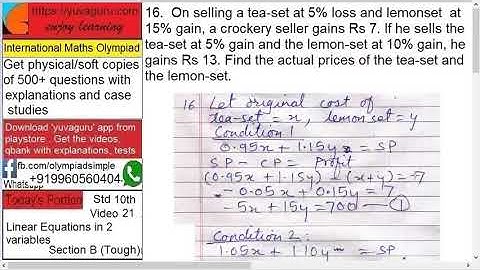 www.yuvaguru.com
enjoy learning
International Maths Olympiad
Get physical/soft copies
of 500+ questions with
explanations and case
studies
Download 'yuvaguru' app from
playstore . Get the videos,
qbank with explanations, tests
fb.com/olympiadsimple
Whatsapp
+919960560404
Today's Portion
Std 10th
Video 21
Linear Equations in 2
variables
Section B (Tough)
16. On selling a tea-set at 5% loss and lemonset at
15% gain, a crockery seller gains Rs 7. If he sells the
tea-set at 5% gain and the lemon-set at 10% gain, he
gains Rs 13. Find the actual prices of the tea-set and
the lemon-set.
16 Let original cost of
tea-set = x, lemon set = y
Condition 1
0.95x + 1.15y = SP
SP - CP = Profit
(0.95x + 1.15y) - (x+y) = 7
-0.05x + 0.15y = 7
-5x + 15y = 700 - 1
Condition 2:
1.05x + 1.10y = SP